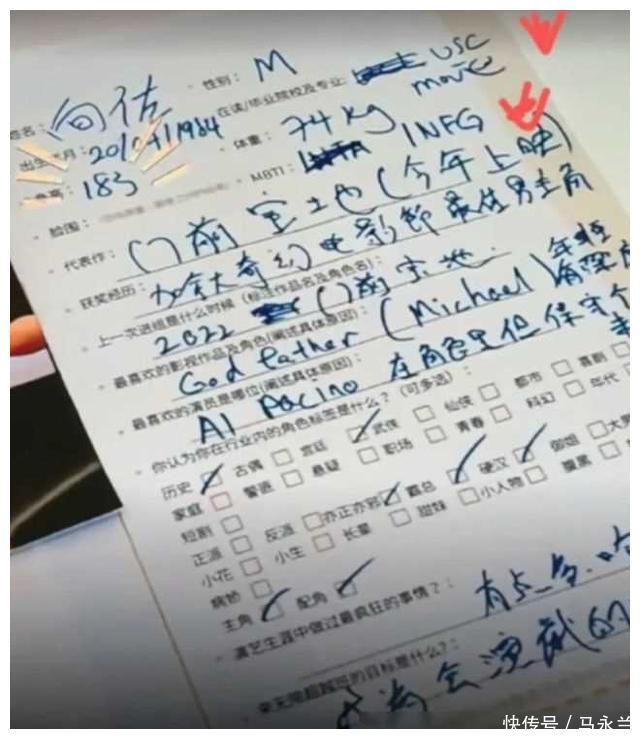 姓名：向佐
性别：M
在读/毕业院校及专业：USC movie
出生年月：2010/1/1984
体重：74 kg
183
MBTI：INFG
脸围：
代表作：门前宝地（今年上映）
获奖经历：加拿大奇幻电影節最佳男主角
上一次进组是什么时候（标注作品名及角色名）：
2022 门前宝地.
最喜欢的影视作品及角色(阐述具体原因)：
God father (Michael)
最喜欢的演员是哪位(阐述具体原因)：
Al Pacino 在角色里但保守个
你认为你在行业内的角色标签是什么？（可多选）：
历史 古偶 宫廷 武侠 仙侠 都市 喜剧
家庭 警匪 悬疑 职场 青春 科幻 年代
短剧
正派 反派 亦正亦邪 霸总 硬汉 御姐
小花 小生 长辈 甜妹 小人物 腹黑
病娇
主角 配角
演艺生涯中做过最疯狂的事情？：
有点多.哈
来无限超越班的目标是什么?：
会演戏的
快传号 / 马永兰